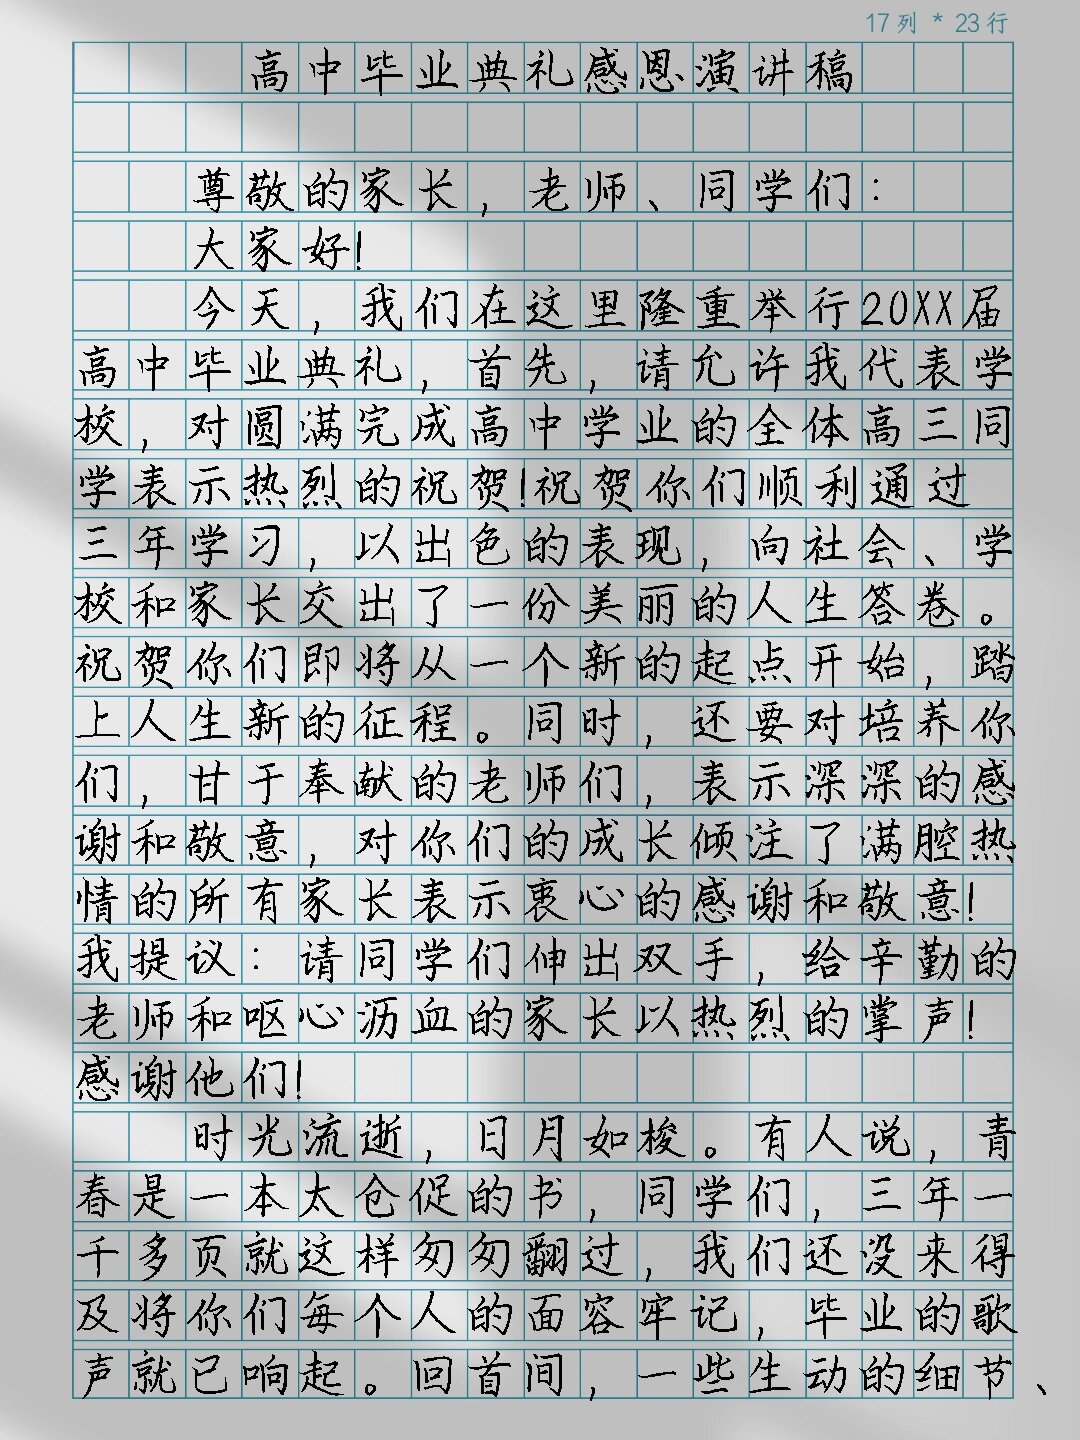 17列 * 23行
高中毕业典礼感恩演讲稿
尊敬的家长，老师、同学们：
大家好！
今天，我们在这里隆重举行20XX届
高中毕业典礼，首先，请允许我代表学
校，对圆满完成高中学业的全体高三同
学表示热烈的祝贺！祝贺你们顺利通过
三年学习，以出色的表现，向社会、学
校和家长交出了一份美丽的人生答卷。
祝贺你们即将从一个新的起点开始，踏
上人生新的征程。同时，还要对培养你
们，甘于奉献的老师们，表示深深的感
谢和敬意，对你们的成长倾注了满腔热
情的所有家长表示衷心的感谢和敬意！
我提议：请同学们伸出双手，给辛勤的
老师和呕心沥血的家长以热烈的掌声！
感谢他们！
时光流逝，日月如梭。有人说，青
春是一本太仓促的书，同学们，三年一
千多页就这样匆匆翻过，我们还没来得
及将你们每个人的面容牢记，毕业的歌
声就已响起。回首间，一些生动的细节、